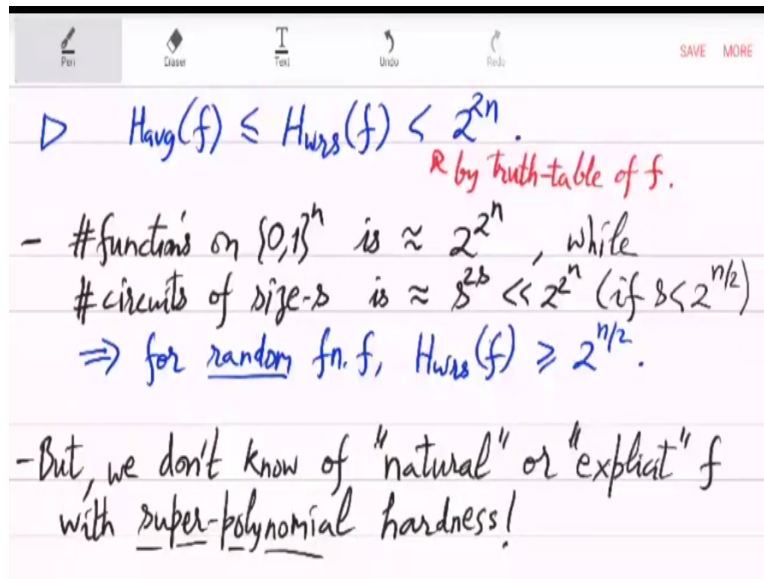 Pen Eraser Text Undo Redo SAVE MORE
▷ Havg(f) ≤ Hwrs(f) < 2^{2n}.
by truth-table of f.
- #functions on {0,1}^n is ≈ 2^{2^n}, while
#circuits of size-s is ≈ s^{2s} << 2^{2^n} (if s<2^{n/2})
⇒ for random fn. f, Hwrs(f) ≥ 2^{n/2}.
- But, we don't know of "natural" or "explicit" f
with super-polynomial hardness!